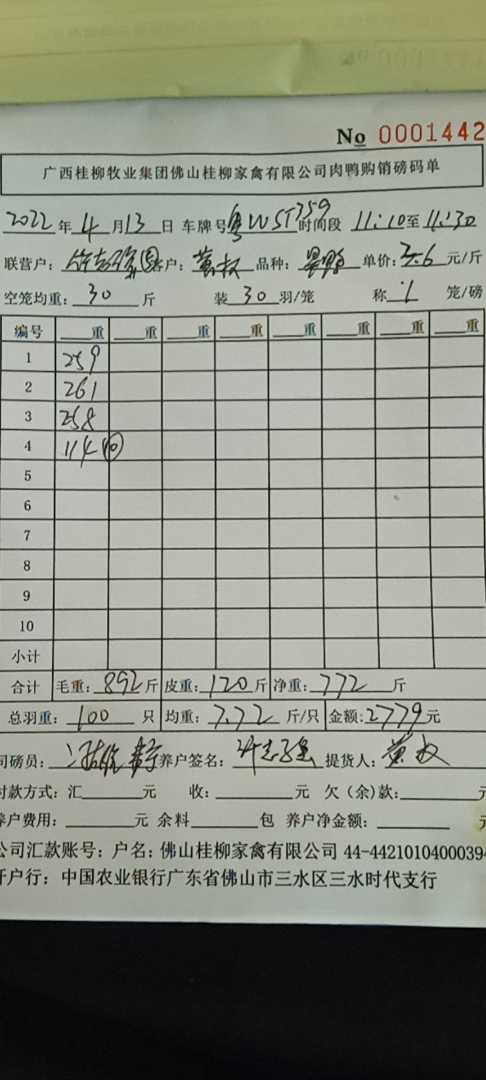 No 0001442
广西桂柳牧业集团佛山桂柳家禽有限公司肉鸭购销磅码单
2022年4月13日 车牌号粤WST759 时间段 11:10至11:30
联营户: 客户:黄权 品种: 单价:3.6元/斤
空笼均重:30斤 装30羽/笼 称1笼/磅
编号 重 重 重 重 重 重 重 重
1 259
2 261
3 258
4 114 ⑩
5
6
7
8
9
10
小计
合计 毛重:892斤 皮重:120斤 净重:772斤
总羽重:100只 均重:7.72斤/只 金额:2779元
司磅员: 养户签名: 提货人:黄权
付款方式:汇 元 收: 元 欠(余)款: 元
养户费用: 元 余料 包 养户净金额: 元
公司汇款账号:户名:佛山桂柳家禽有限公司 44-44210104000394
开户行:中国农业银行广东省佛山市三水区三水时代支行